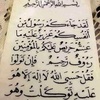 بسم الله الرحمن الرحيم
لقد جاءكم رسول من
أنفسكم عزيز عليه ما
عنتم حريص عليكم بالمؤمنين
رءوف رحيم فإن تولوا
فقل حسبي الله لا إله إلا هو
عليه توكلت وهو